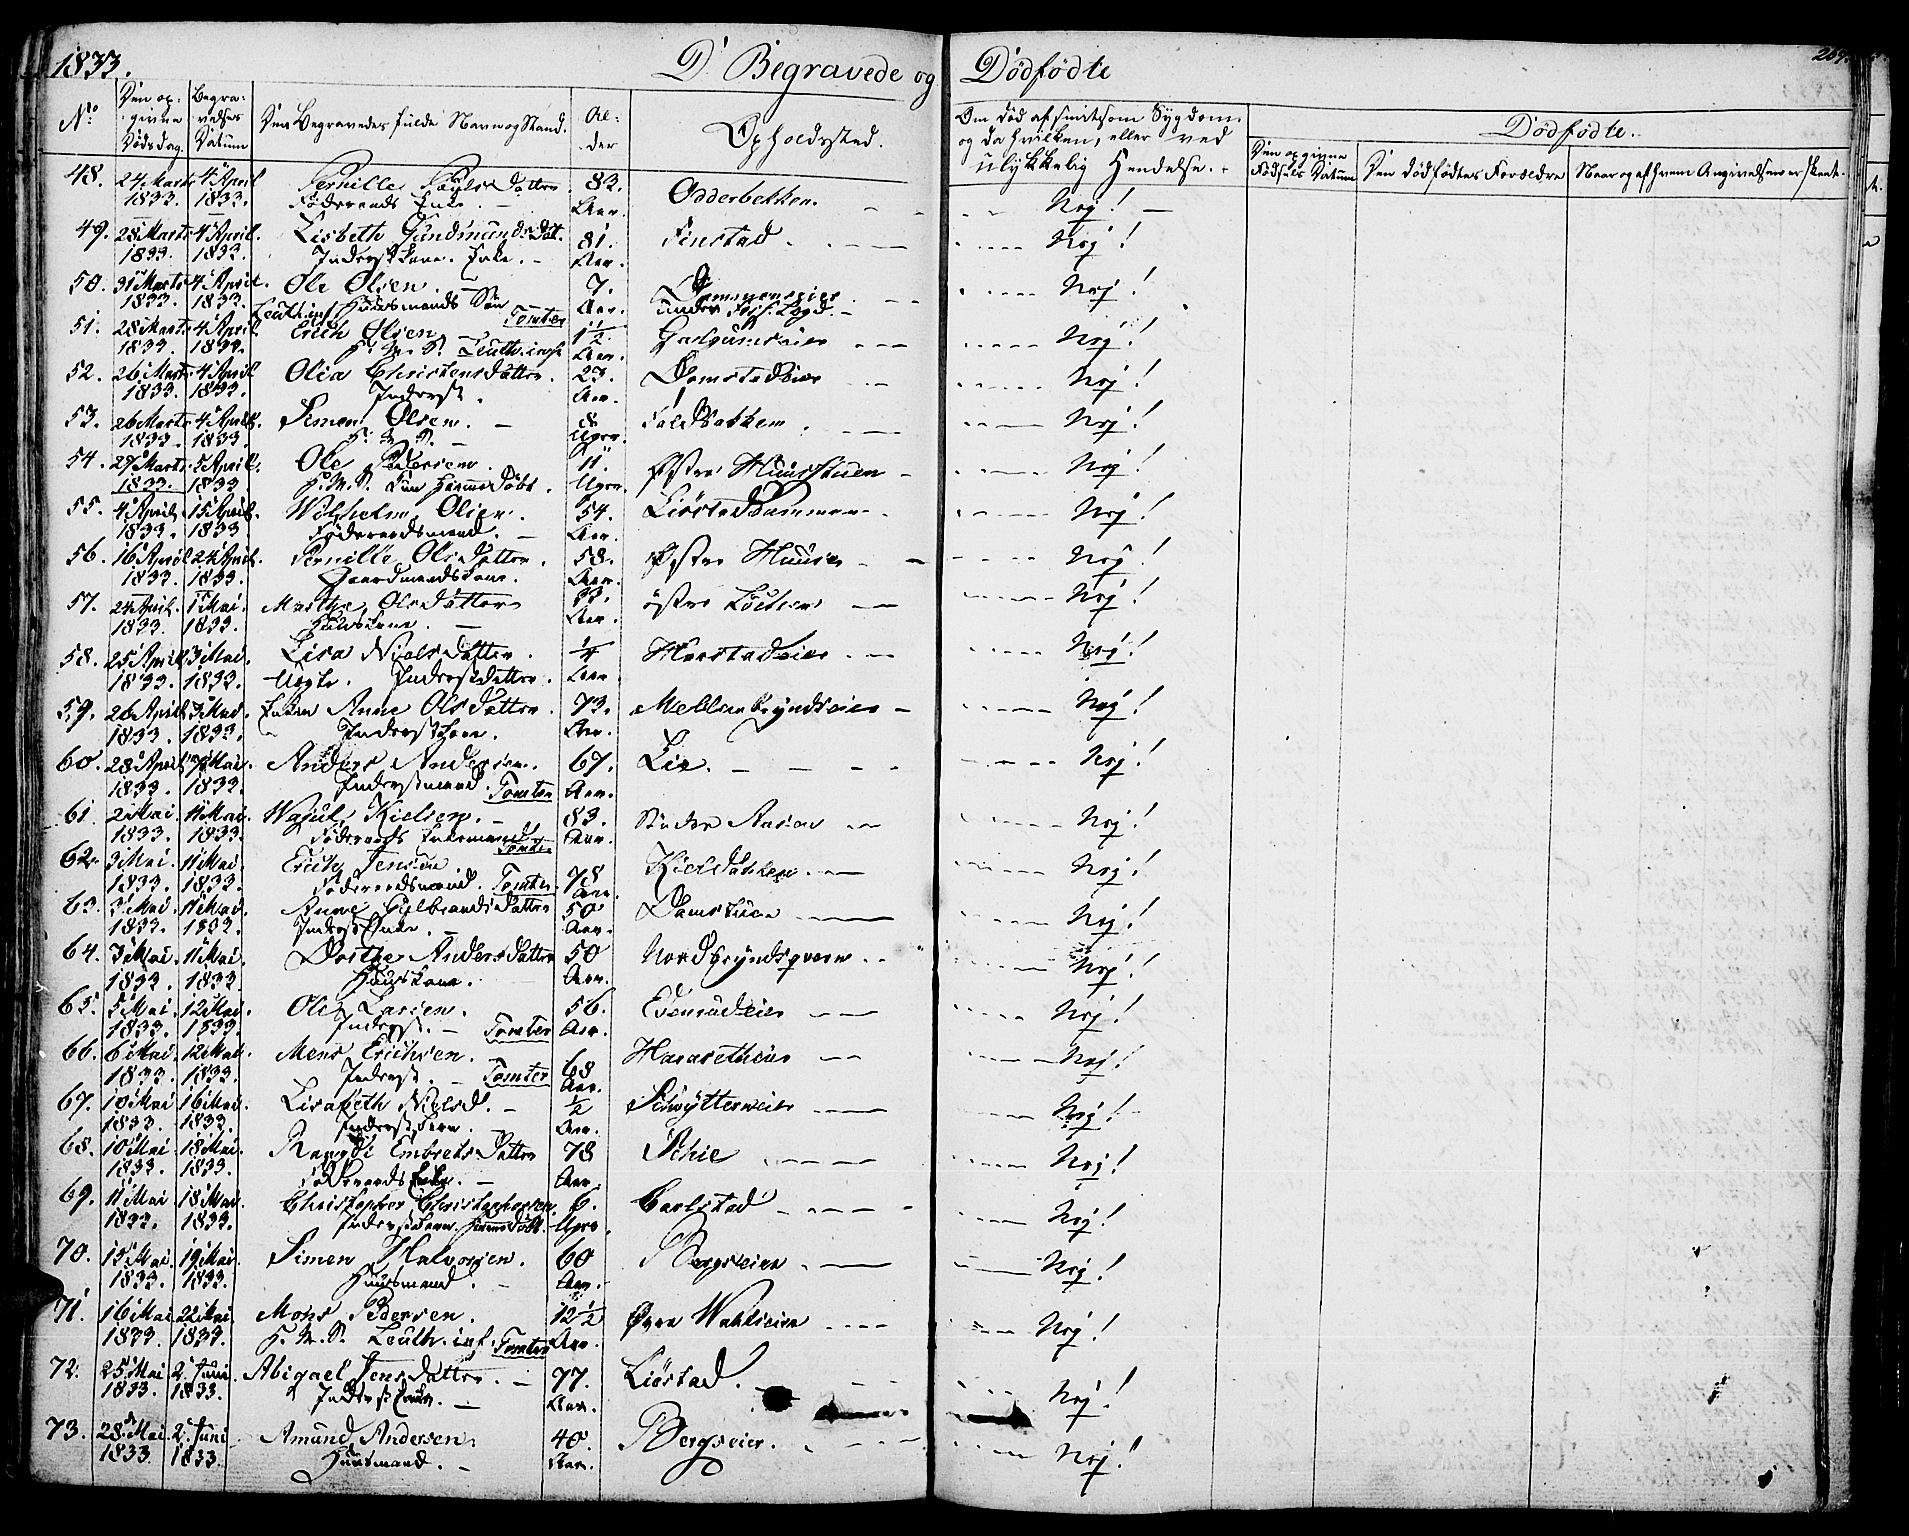 1833. D. Begravede og Dødfødte 259.
No. Den opgivne Dødsdag. Begravelses Datum Den Begravedes fulde Navn og Stand. Alder Opholdssted. Om død af smitsom Sygdom og da hvilken, eller ved ulykkelig Hendelse. Dødfødte. Den opgivne Fødsels Datum Den dødfødtes Forældre Naar og af hvem Angivelsen er skeet.
48. 24 Marts 4 April Pernille Povlsdatter. 82. Odderbekken. Nej!
1833. 1833. Føderaads Enke. Aar.
49. 28 Marts 4 April. Lisbeth Gundmundsdat. 81. Finstad. Nej!
1833. 1833. Inderst Enke. Aar.
50. 31 Marts 4 April. Ole Olsen. 7. Nej!
1833. 1833. Leuth. inf. Huusmands Søn Tomter Aar.
51. 28 Marts 4 April. Erich Olsen 1½ Nej!
1833. 1833. H. M. S. Leuth. inf. Aar.
52. 26 Marts 4 April Olia Christensdatter. 23. Domstadeier Nej!
1833. 1833. Inderst. Aar.
53. 26 Marts 4 April. Simen Olsen. 8 Foldbakken Nej!
1833. 1833. H. M. S. Uger.
54. 27 Marts 5 April. Ole Pedersen. 11. Østre Huusstuen Nej!
1833. 1833 H. M. S. Hiemmedøbt. Uger.
55. 4 April. 15 April. Wilhelm Olsen. 54. Nej!
1833. 1833 Føderaadsmand. Aar.
56. 16 April 24 April. Pernille Olsdatter. 58. Østre Huuse Nej!
1833. 1833. Gaardmandskone. Aar.
57. 24 April. 1 Mai. Marthe Olsdatter 33. østre Løiten Nej!
1833. 1833. Huuskone. Aar.
58. 25 April 3 Mai. Lisa Nielsdatter. ¼ Nej!
1833. 1833. Uægte. Inderstdatter. Aar.
59. 26 April 3 Mai. Enken Anne Olsdatter. 73. Mellembyndseier Nej!
1833. 1833. Inderstkone. Aar.
60. 28 April 7 Mai. Anders Andersen. 67. Lie. Nej!
1833. 1833. Inderstmand. Tomter Aar.
61. 2 Mai 11 Mai. Kielsen. 83. Søndre Aasen Nej!
1833. 1833. Føderaads Enkemand Tomter Aar.
62. 3 Mai. 11 Mai Erich Jensen 78 Kielsbakken Nej!
1833. 1833. Føderaadsmand. Tomter. Aar.
63. 3 Mai 11 Mai. Anne Gulbrandsdatter 50 Domstuen Nej!
1833. 1833. Inderst Enke. Aar.
64. 3 Mai 11 Mai. Dorthe Andersdatter 50 Nordbyndsqvern Nej!
1833. 1833. Huuskone. Aar.
65. 5 Mai. 12 Mai. Ole Larsen. 56. Nej!
1833. 1833. Inderst. Tomter Aar.
66. 6 Mai 12 Mai. Mons Erichsen. 68 Nej!
1833. 1833. Inderst. Tomter Aar.
67. 10 Mai 16 Mai. Lisabeth Nielsd. ½ Skøytterneier Nej!
1833. 1833. Inderstbarn. Aar.
68. 10 Mai 18 Mai. Rangdi Embretsdatter 78 Schie Nej!
1833. 1833. Føderaads Enke. Aar.
69. 11 Mai 18 Mai Christopher Christophersen. 6. Carlstad Nej!
1833. 1833. Inderstbarn. hiemmedøbt. Uger.
70. 15 Mai. 19 Mai. Simen Halvorsen. 60 Bergseier Nej!
1833. 1833. Huusmand. Aar.
71. 16 Mai 22 Mai. Mons Pedersen. 12½ Øvre Wahlseier Nej!
1833. 1833. H. M. S. Leuth. inf. Tomter Aar.
72. 25 Mai 2 Juni. Abigael Jensdatter. 77. Liørstad. Nej!
1833. 1833. Inderst Enke. Aar.
73. 28 Mai 2 Juni Amund Andersen. 40. Bergseier. Nej!
1833. 1833. Huusmand. Aar.